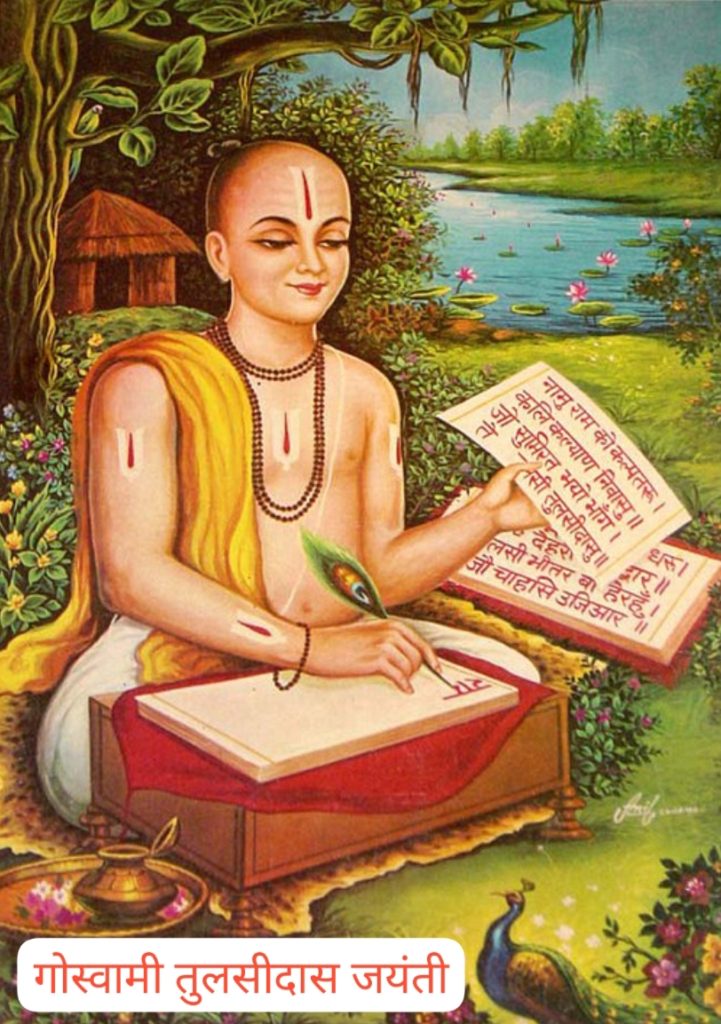 नामु राम को कल्पतरू।
कलि कल्याण निवासु॥
जो सुमिरत भयो भाँग।
ते सी तुलसीदासु॥
धरू।
देहरी आर॥
लसी भीतर बा हेरहुँ।
जौ चाहसि उजिआर॥
गोस्वामी तुलसीदास जयंती